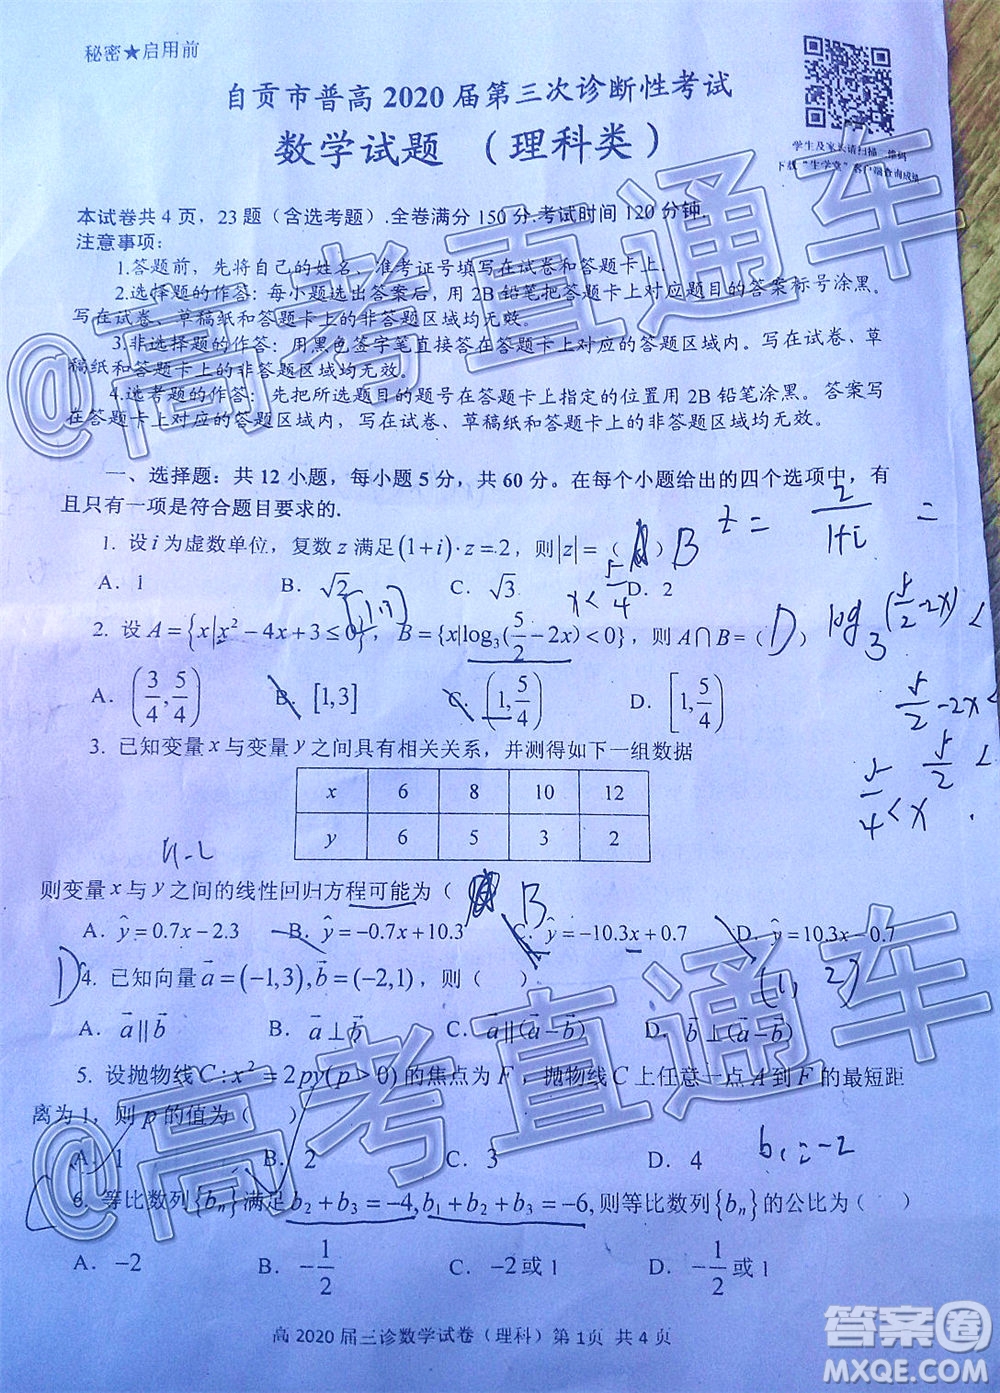 秘密★启用前
自贡市普高 2020 届第三次诊断性考试
数学试题 （理科类）
学生及家长请扫描二维码
本试卷共 4 页，23 题（含选考题）.全卷满分 150 分.考试时间 120 分钟.
注意事项：
1.答题前，先将自己的姓名、准考证号填写在试卷和答题卡上.
2.选择题的作答：每小题选出答案后，用 2B 铅笔把答题卡上对应题目的答案标号涂黑。
写在试卷、草稿纸和答题卡上的非答题区域均无效。
3.非选择题的作答：用黑色签字笔直接答在答题卡上对应的答题区域内。写在试卷、草
稿纸和答题卡上的非答题区域均无效。
4.选考题的作答：先把所选题目的题号在答题卡上指定的位置用 2B 铅笔涂黑。答案写
在答题卡上对应的答题区域内，写在试卷、草稿纸和答题卡上的非答题区域均无效。
一、选择题：共 12 小题，每小题 5 分，共 60 分。在每个小题给出的四个选项中，有
且只有一项是符合题目要求的.
z = 2/(1+i) =
1. 设 i 为虚数单位，复数 z 满足 (1+i)·z=2，则|z|=（ ） B
A. 1 B. √2 C. √3 D. 2
x< 5/4
2. 设 A={x|x²-4x+3≤0}，B={x|log₃(5/2-2x)<0}，则 A∩B=（ D ）
log₃(5/2-2x)<
A. (3/4, 5/4) B. [1,3] C. (1, 5/4) D. [1, 5/4)
5/2-2x<
3. 已知变量 x 与变量 y 之间具有相关关系，并测得如下一组数据
5/2 <
5/4 < x
x 6 8 10 12
y 6 5 3 2
则变量 x 与 y 之间的线性回归方程可能为（ B
A. ŷ=0.7x-2.3 B. ŷ=-0.7x+10.3 C. ŷ=-10.3x+0.7 D. ŷ=10.3x-0.7
D 4. 已知向量 a⃗=(-1,3), b⃗=(-2,1)，则（ ）
(1, 2)
A. a⃗∥b⃗ B. a⃗⊥b⃗ C. a⃗∥(a⃗-b⃗) D. b⃗⊥(a⃗-b⃗)
5. 设抛物线 C:x²=2py(p>0) 的焦点为 F，抛物线 C 上任意一点 A 到 F 的最短距
离为 1，则 p 的值为（ ）
A. 1 B. 2 C. 3 D. 4
b₁=-2
C 6. 等比数列{bₙ}满足 b₂+b₃=-4, b₁+b₂+b₃=-6, 则等比数列{bₙ}的公比为（ ）
A. -2 B. -1/2 C. -2或1 D. -1/2或1
高 2020 届三诊数学试卷（理科）第 1页 共 4 页
@高考直通车
@高考直通车
答案圈
MXQE.COM